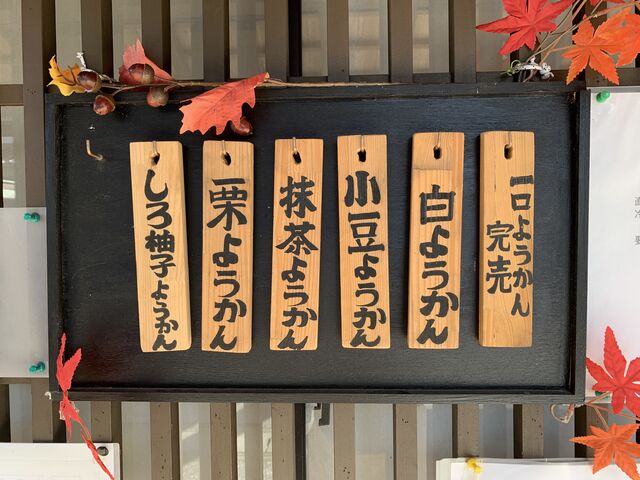 一口ようかん
完売
白ようかん
小豆ようかん
抹茶ようかん
栗ようかん
しろ柚子ようかん